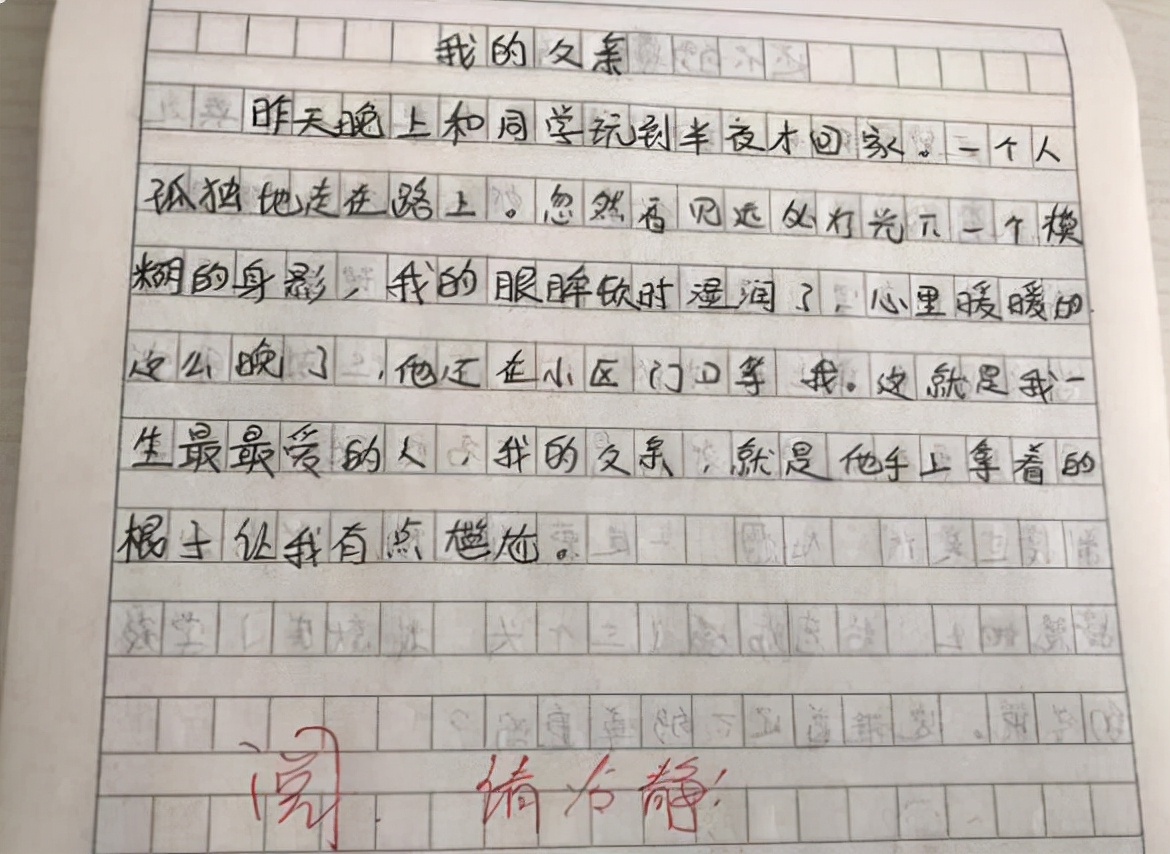 我的父亲
昨天晚上和同学玩到半夜才回家。一个人
孤独地走在路上。忽然看见远处灯光下一个模
糊的身影,我的眼眸顿时湿润了,心里暖暖的.
这么晚了,他还在小区门口等我。这就是我一
生最最爱的人,我的父亲,就是他手上拿着的
棍子让我有点尴尬。
阅. 请冷静!